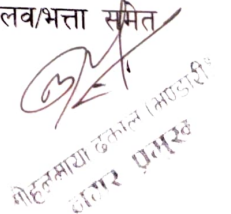 लव/भत्ता समेत
मोहनमाया ढकाल (भण्डारी)
नगर प्रमुख